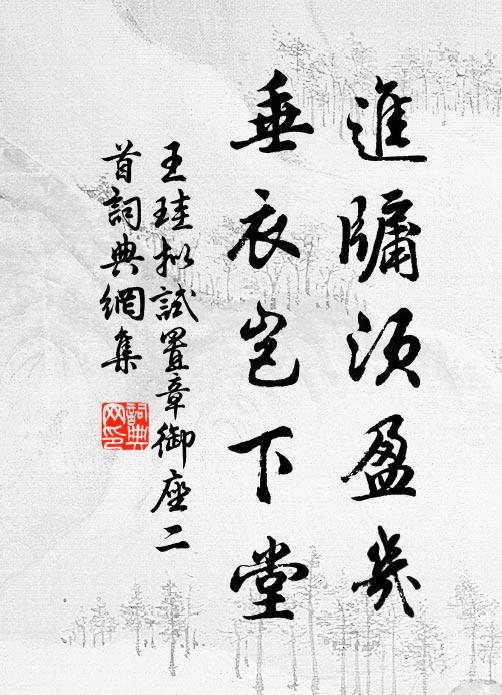 進牖須盈幾
垂衣豈下堂
王珪拟試置章御座二
首詞典網集
詞典网印